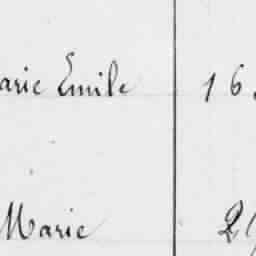 arie Emile 16
Marie 2